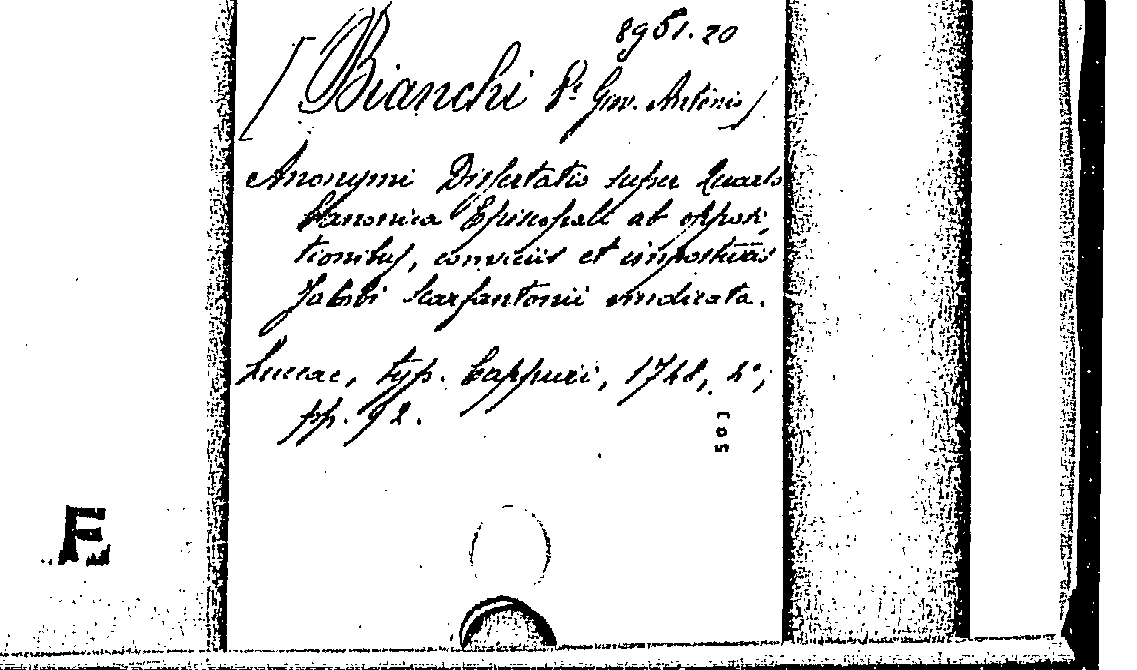 8951.20
[Bianchi P.e Giov. Antonio]
Anonymi Dissertatio super Quarta
Canonica Episcopali ab opposi-
tionibus, conviciis et imposturis
Jacobi Scarfantonii vindicata.
Lucae, typ. Cappuri, 1748, 4°,
pp. 92.
503
E